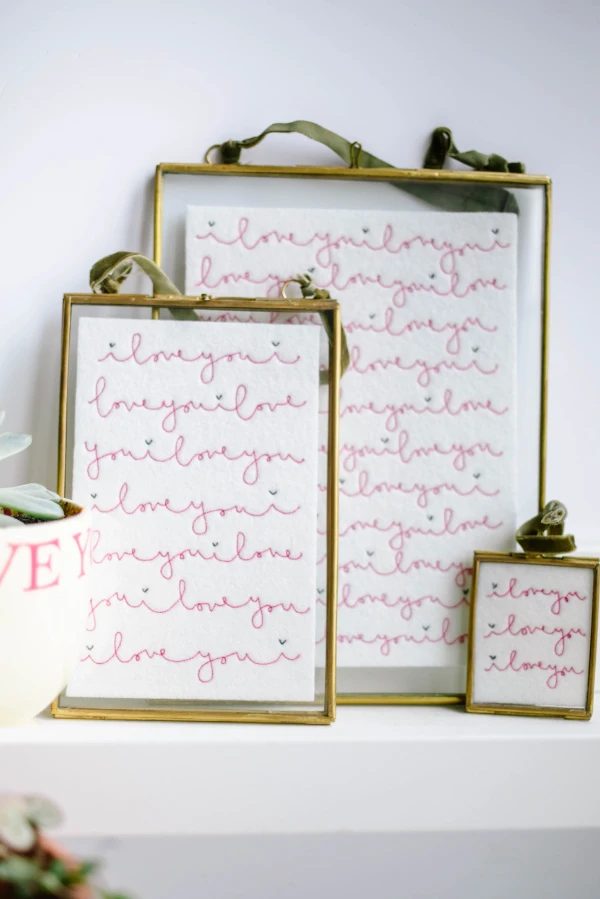 i love you i love you i
love you i love you i love
i love you
love you i
love you i love
you i love you
i love you i
love you i love
you i love you
i love you
love you i lo
i love you i
love you i love
you i love you
i love you i
love you i love
you i love you
i love you i
i love you
i love you
i love you
VE Y